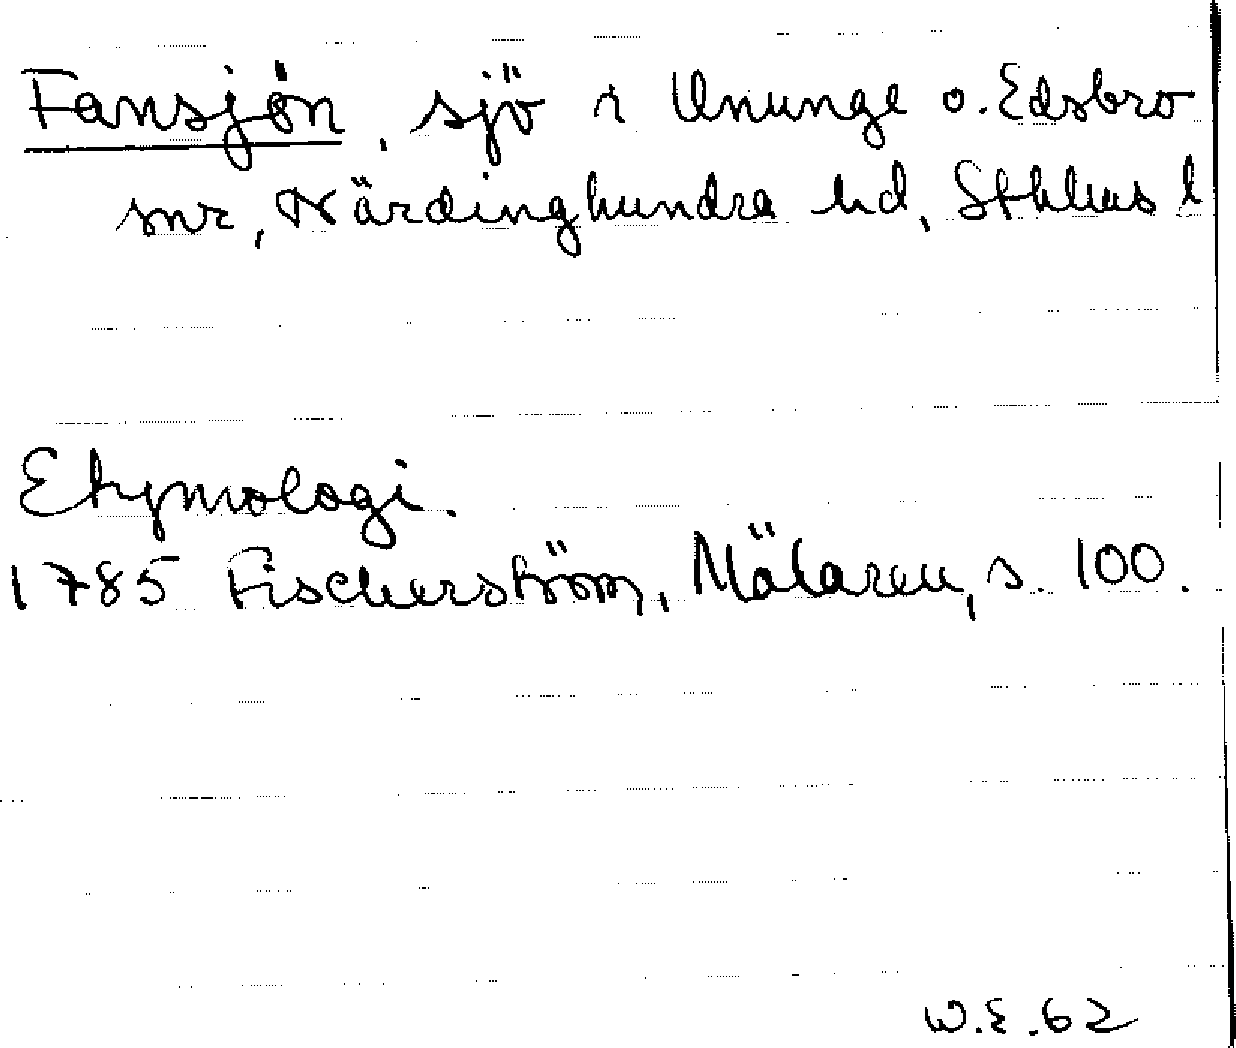 Fansjön, sjö i Ununge o. Edsbro
snr, Närdinghundra hd, Sthlms l
Etymologi.
1785 Fischerström, Mälaren, s. 100.
W.E. 62